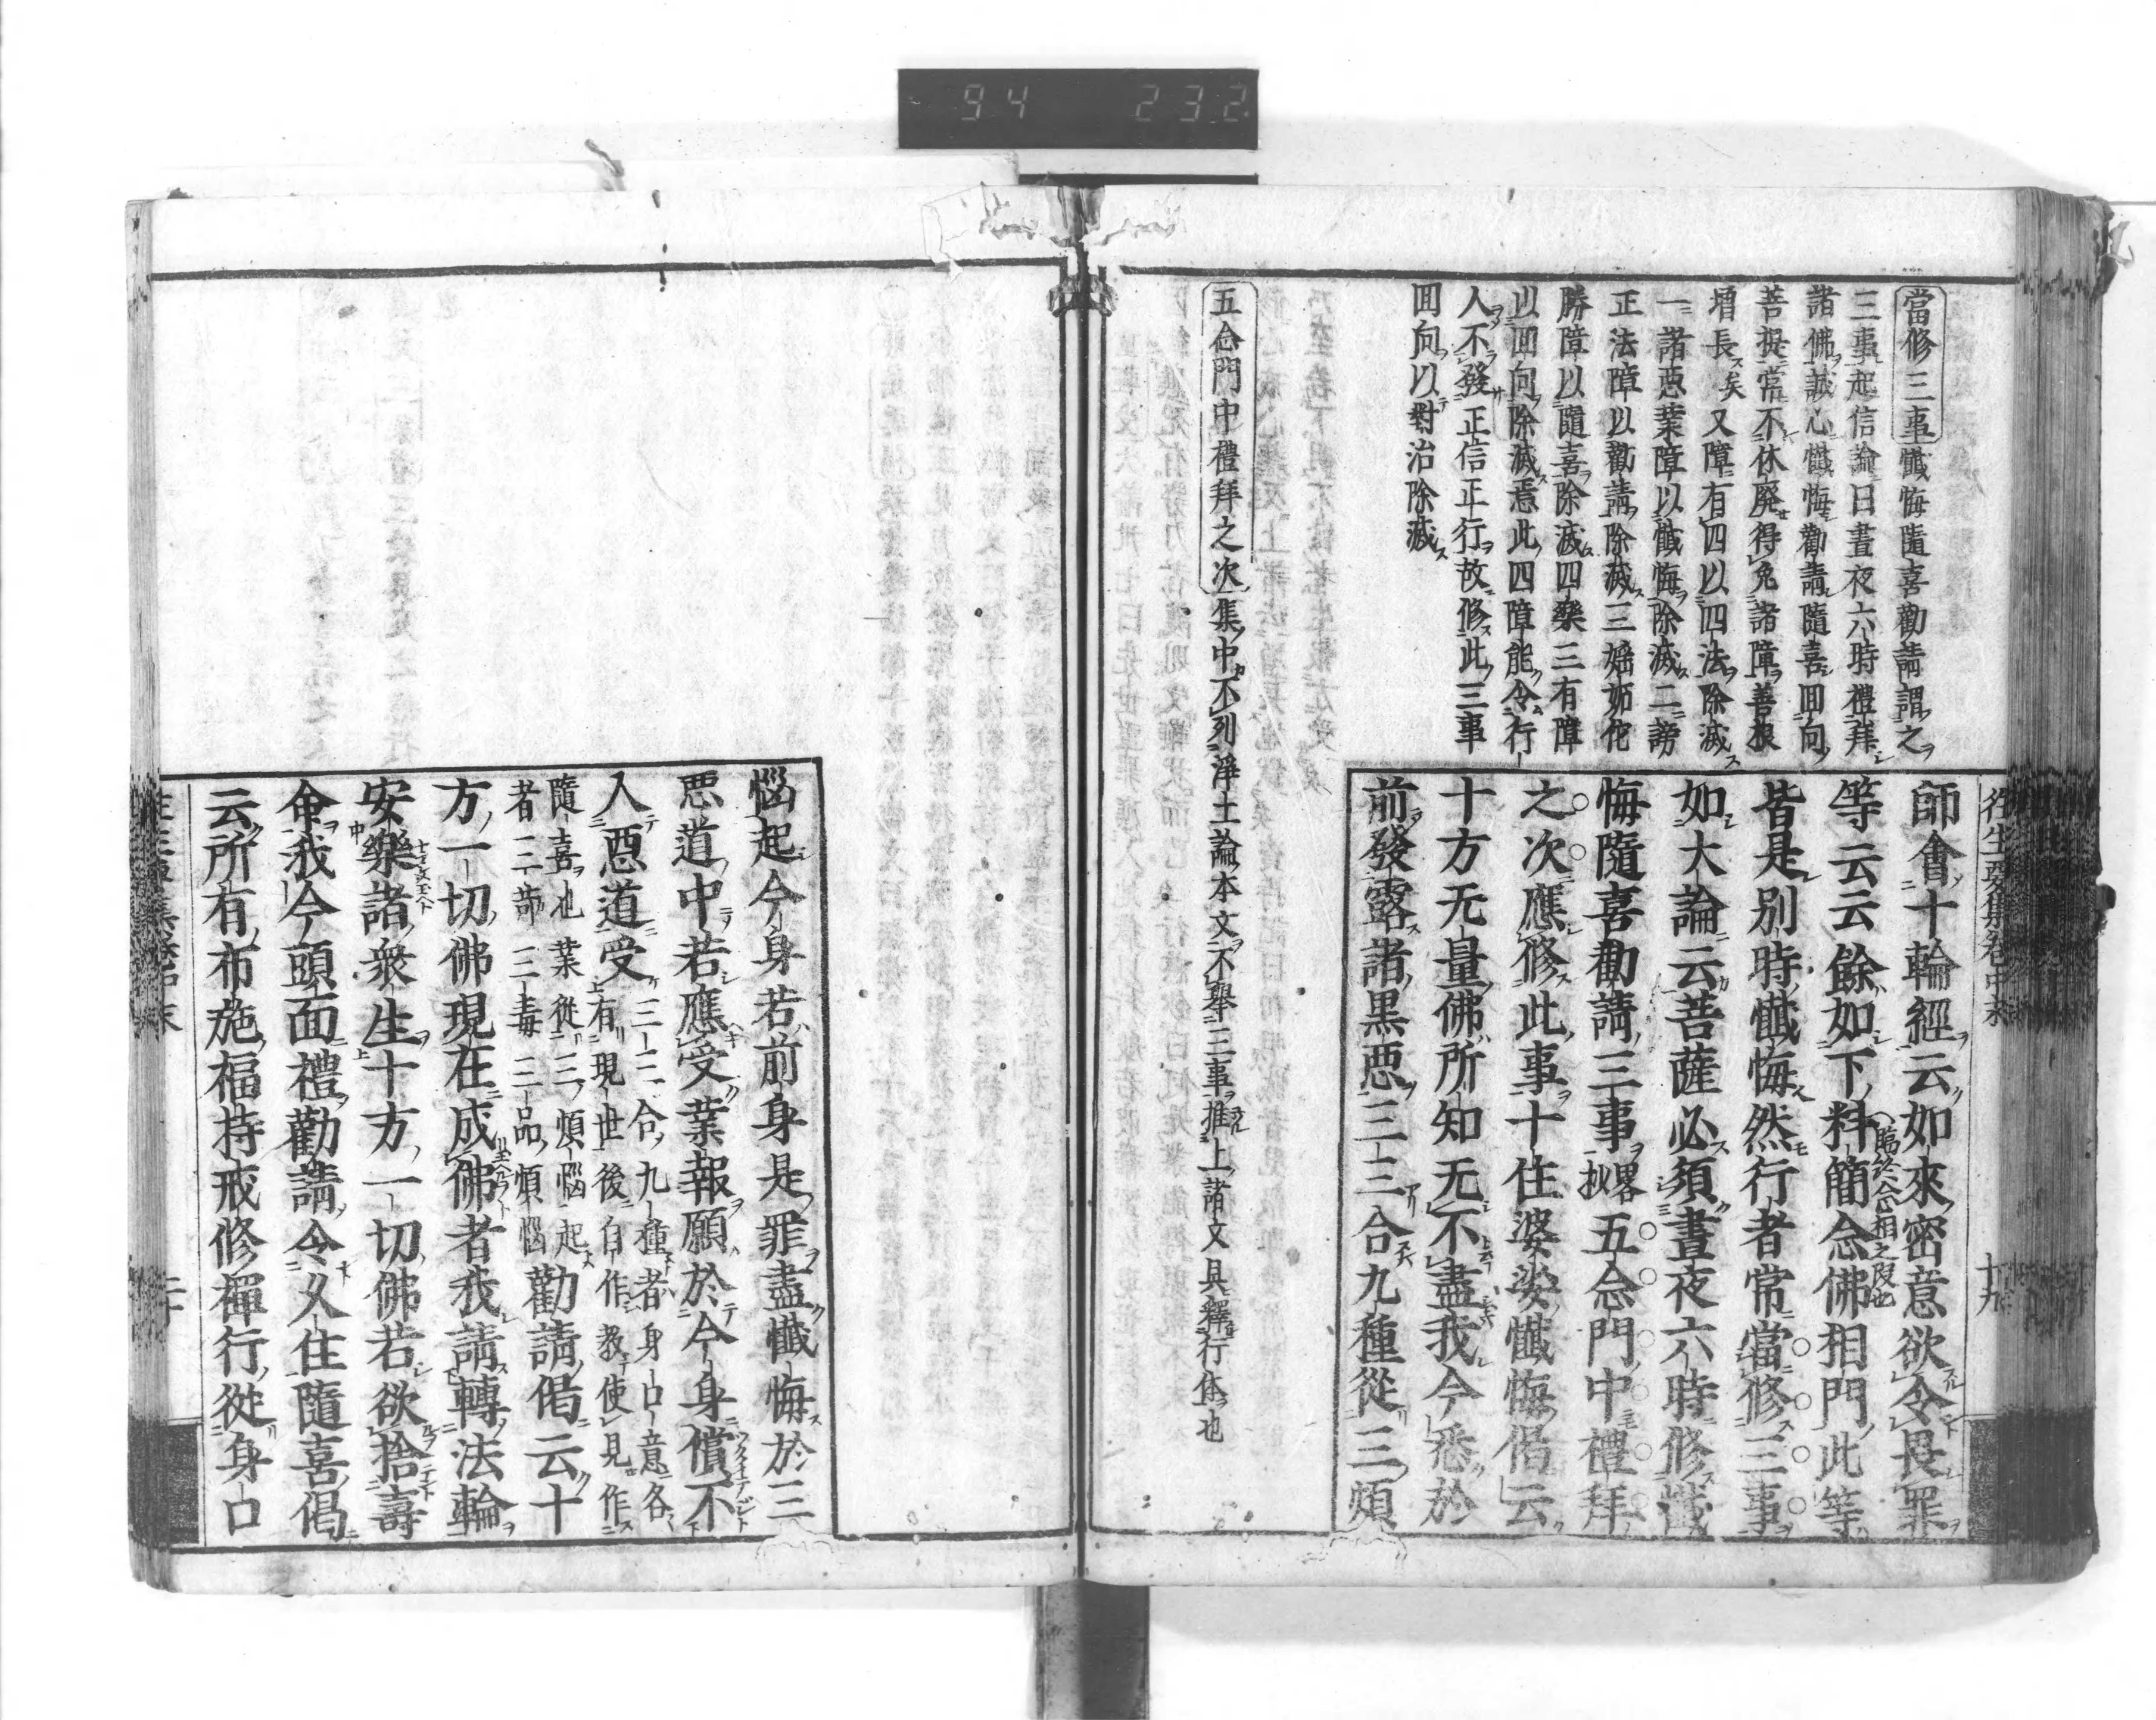 94 232
往生要集卷中末
十九
當修三事懺悔隨喜勸請謂之
三事起信論曰晝夜六時禮拜
諸佛誠心懺悔勸請隨喜回向
菩提常不休廢得免諸障善根
增長矣又障有四以四法除滅
一諸惡業障以懺悔除滅二謗
正法障以勸請除滅三嫉妬佗
勝障以隨喜除滅四樂三有障
以回向除滅焉此四障能令行
人不發正信正行故修此三事
回向以對治除滅
師會十輪經云如來密意欲令畏罪
等云云餘如下料簡念佛相門此等
臨終念相之段也
皆是別時懺悔然行者常當修三事
如大論云菩薩必須晝夜六時修懺
悔隨喜勸請三事畧抄五念門中禮拜
之次應修此事十住婆娑懺悔偈云
十方无量佛所知无不盡我今悉於
前發露諸黑惡三三合九種從三煩
五念門中禮拜之次集中不列淨土論本文不舉三事推上諸文具釋行体也
惱起今身若前身是罪盡懺悔於三
惡道中若應受業報願於今身償不
入惡道受三三合九種者身口意各
有現世後自作教使見作
隨喜也業從三煩惱起
者三部三毒三品煩惱勸請偈云十
方一切佛現在成佛者我請轉法輪
安樂諸衆生十方一切佛若欲捨壽
命我今頭面禮勸請令久住隨喜偈
云所有布施福持戒修禪行從身口